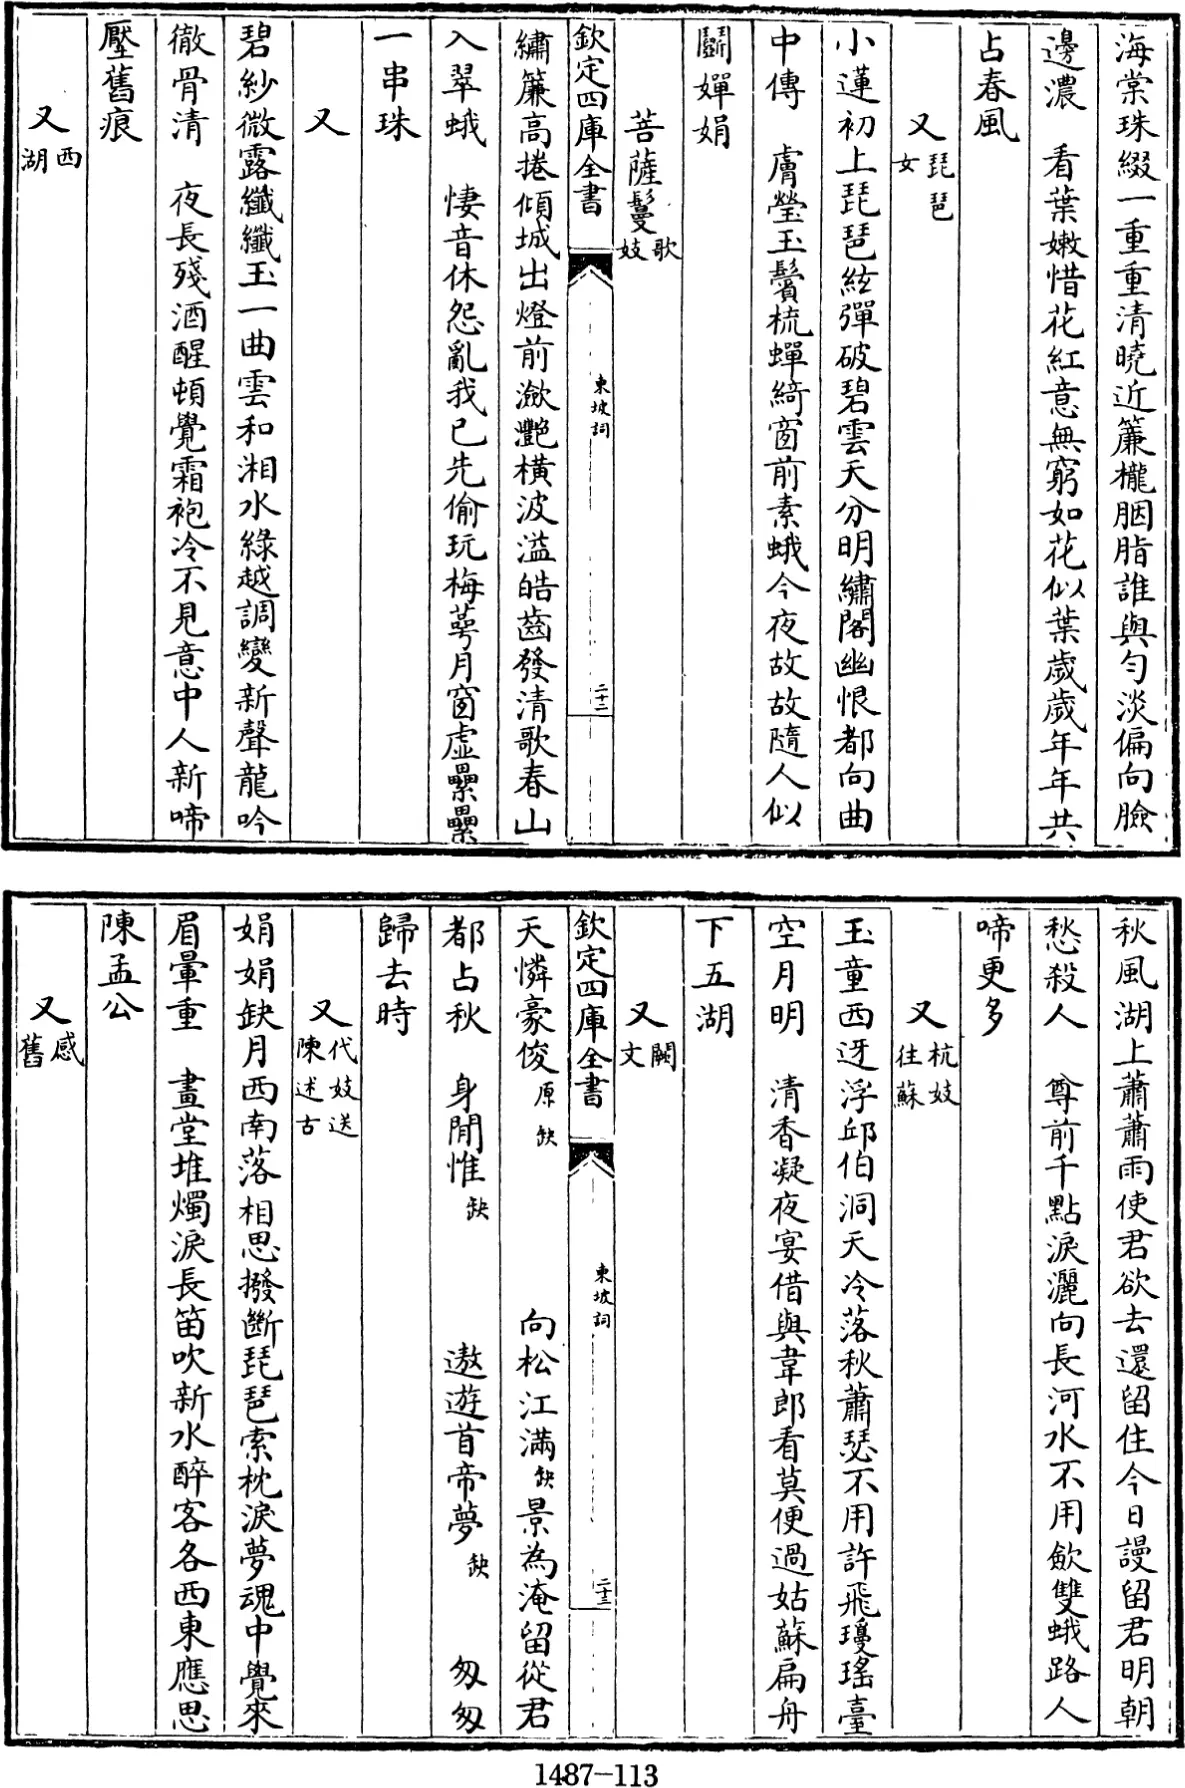 海棠珠綴一重重清曉近簾櫳胭脂誰與勻淡偏向臉
邊濃　看葉嫩惜花紅意無窮如花似葉歲歲年年共
占春風
又琵琶女
小蓮初上琵琶絃彈破碧雲天分明繡閣幽恨都向曲
中傳　膚瑩玉鬢梳蟬綺窗前素蛾今夜故故隨人似
鬬嬋娟
菩薩鬘歌妓
欽定四庫全書　東坡詞　二十二
繡簾高捲傾城出燈前瀲灧橫波溢皓齒發清歌春山
入翠蛾　悽音休怨亂我已先偷玩梅萼月窗虛纍纍
一串珠
又
碧紗微露纖纖玉一曲雲和湘水綠越調變新聲龍吟
徹骨清　夜長殘酒醒頓覺霜袍冷不見意中人新啼
壓舊痕
又西湖
秋風湖上蕭蕭雨使君欲去還留住今日謾留君明朝
愁殺人　尊前千點淚灑向長河水不用歛雙蛾路人
啼更多
又杭妓往蘇
玉童西迓浮邱伯洞天冷落秋蕭瑟不用許飛瓊瑤臺
空月明　清香凝夜宴借與韋郎看莫便過姑蘇扁舟
下五湖
又闕文
欽定四庫全書　東坡詞　二十三
天憐豪俊原缺　向松江滿缺景為淹留從君
都占秋　身閒惟缺　遨遊首帝夢缺　匆匆
歸去時
又代妓送陳述古
娟娟缺月西南落相思撥斷琵琶索枕淚夢魂中覺來
眉暈重　畫堂堆燭淚長笛吹新水醉客各西東應思
陳孟公
又感舊
1487—113